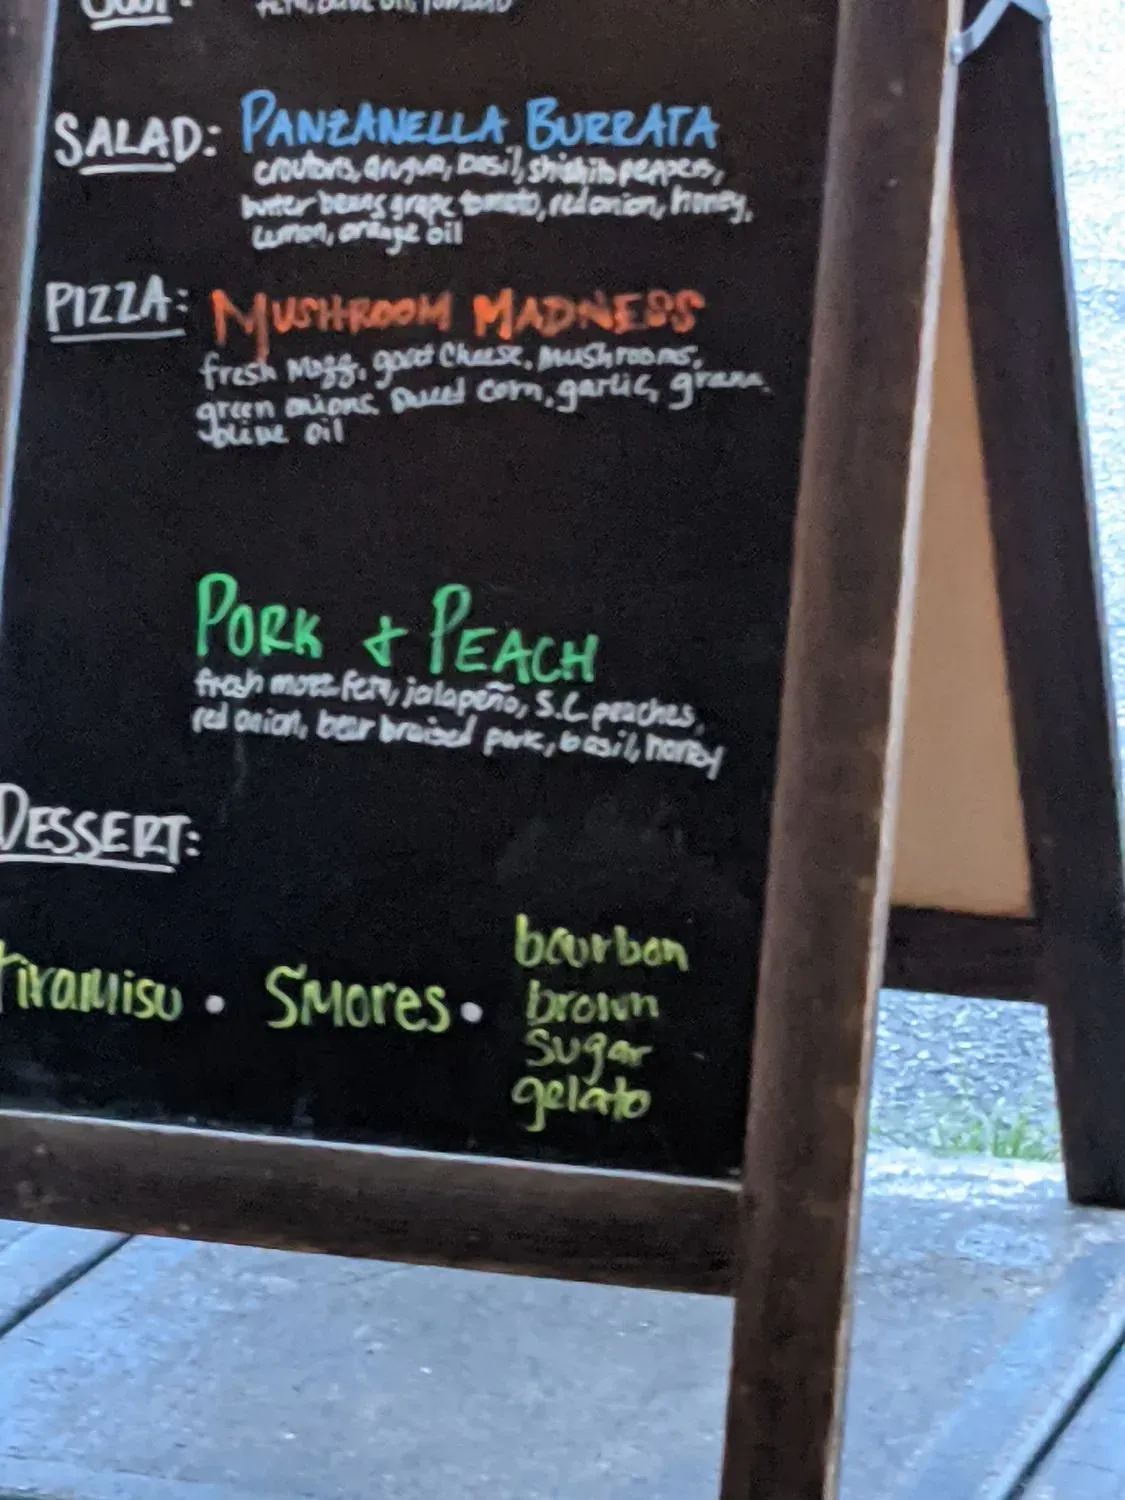 SOUP:
feta, olive oil,
SALAD: PANZANELLA BURRATA
croutons, arugua, basil, shishito peppers,
butter beans grape tomato, red onion, honey,
lemon, orange oil
PIZZA: MUSHROOM MADNESS
fresh mozz, goat cheese, mushrooms,
green onions, sweet corn, garlic, grana,
olive oil
PORK + PEACH
fresh mozz, feta, jalapeño, S.C. peaches,
red onion, beer braised pork, basil, honey
DESSERT:
tiramisu • Smores • bourbon
brown
sugar
gelato